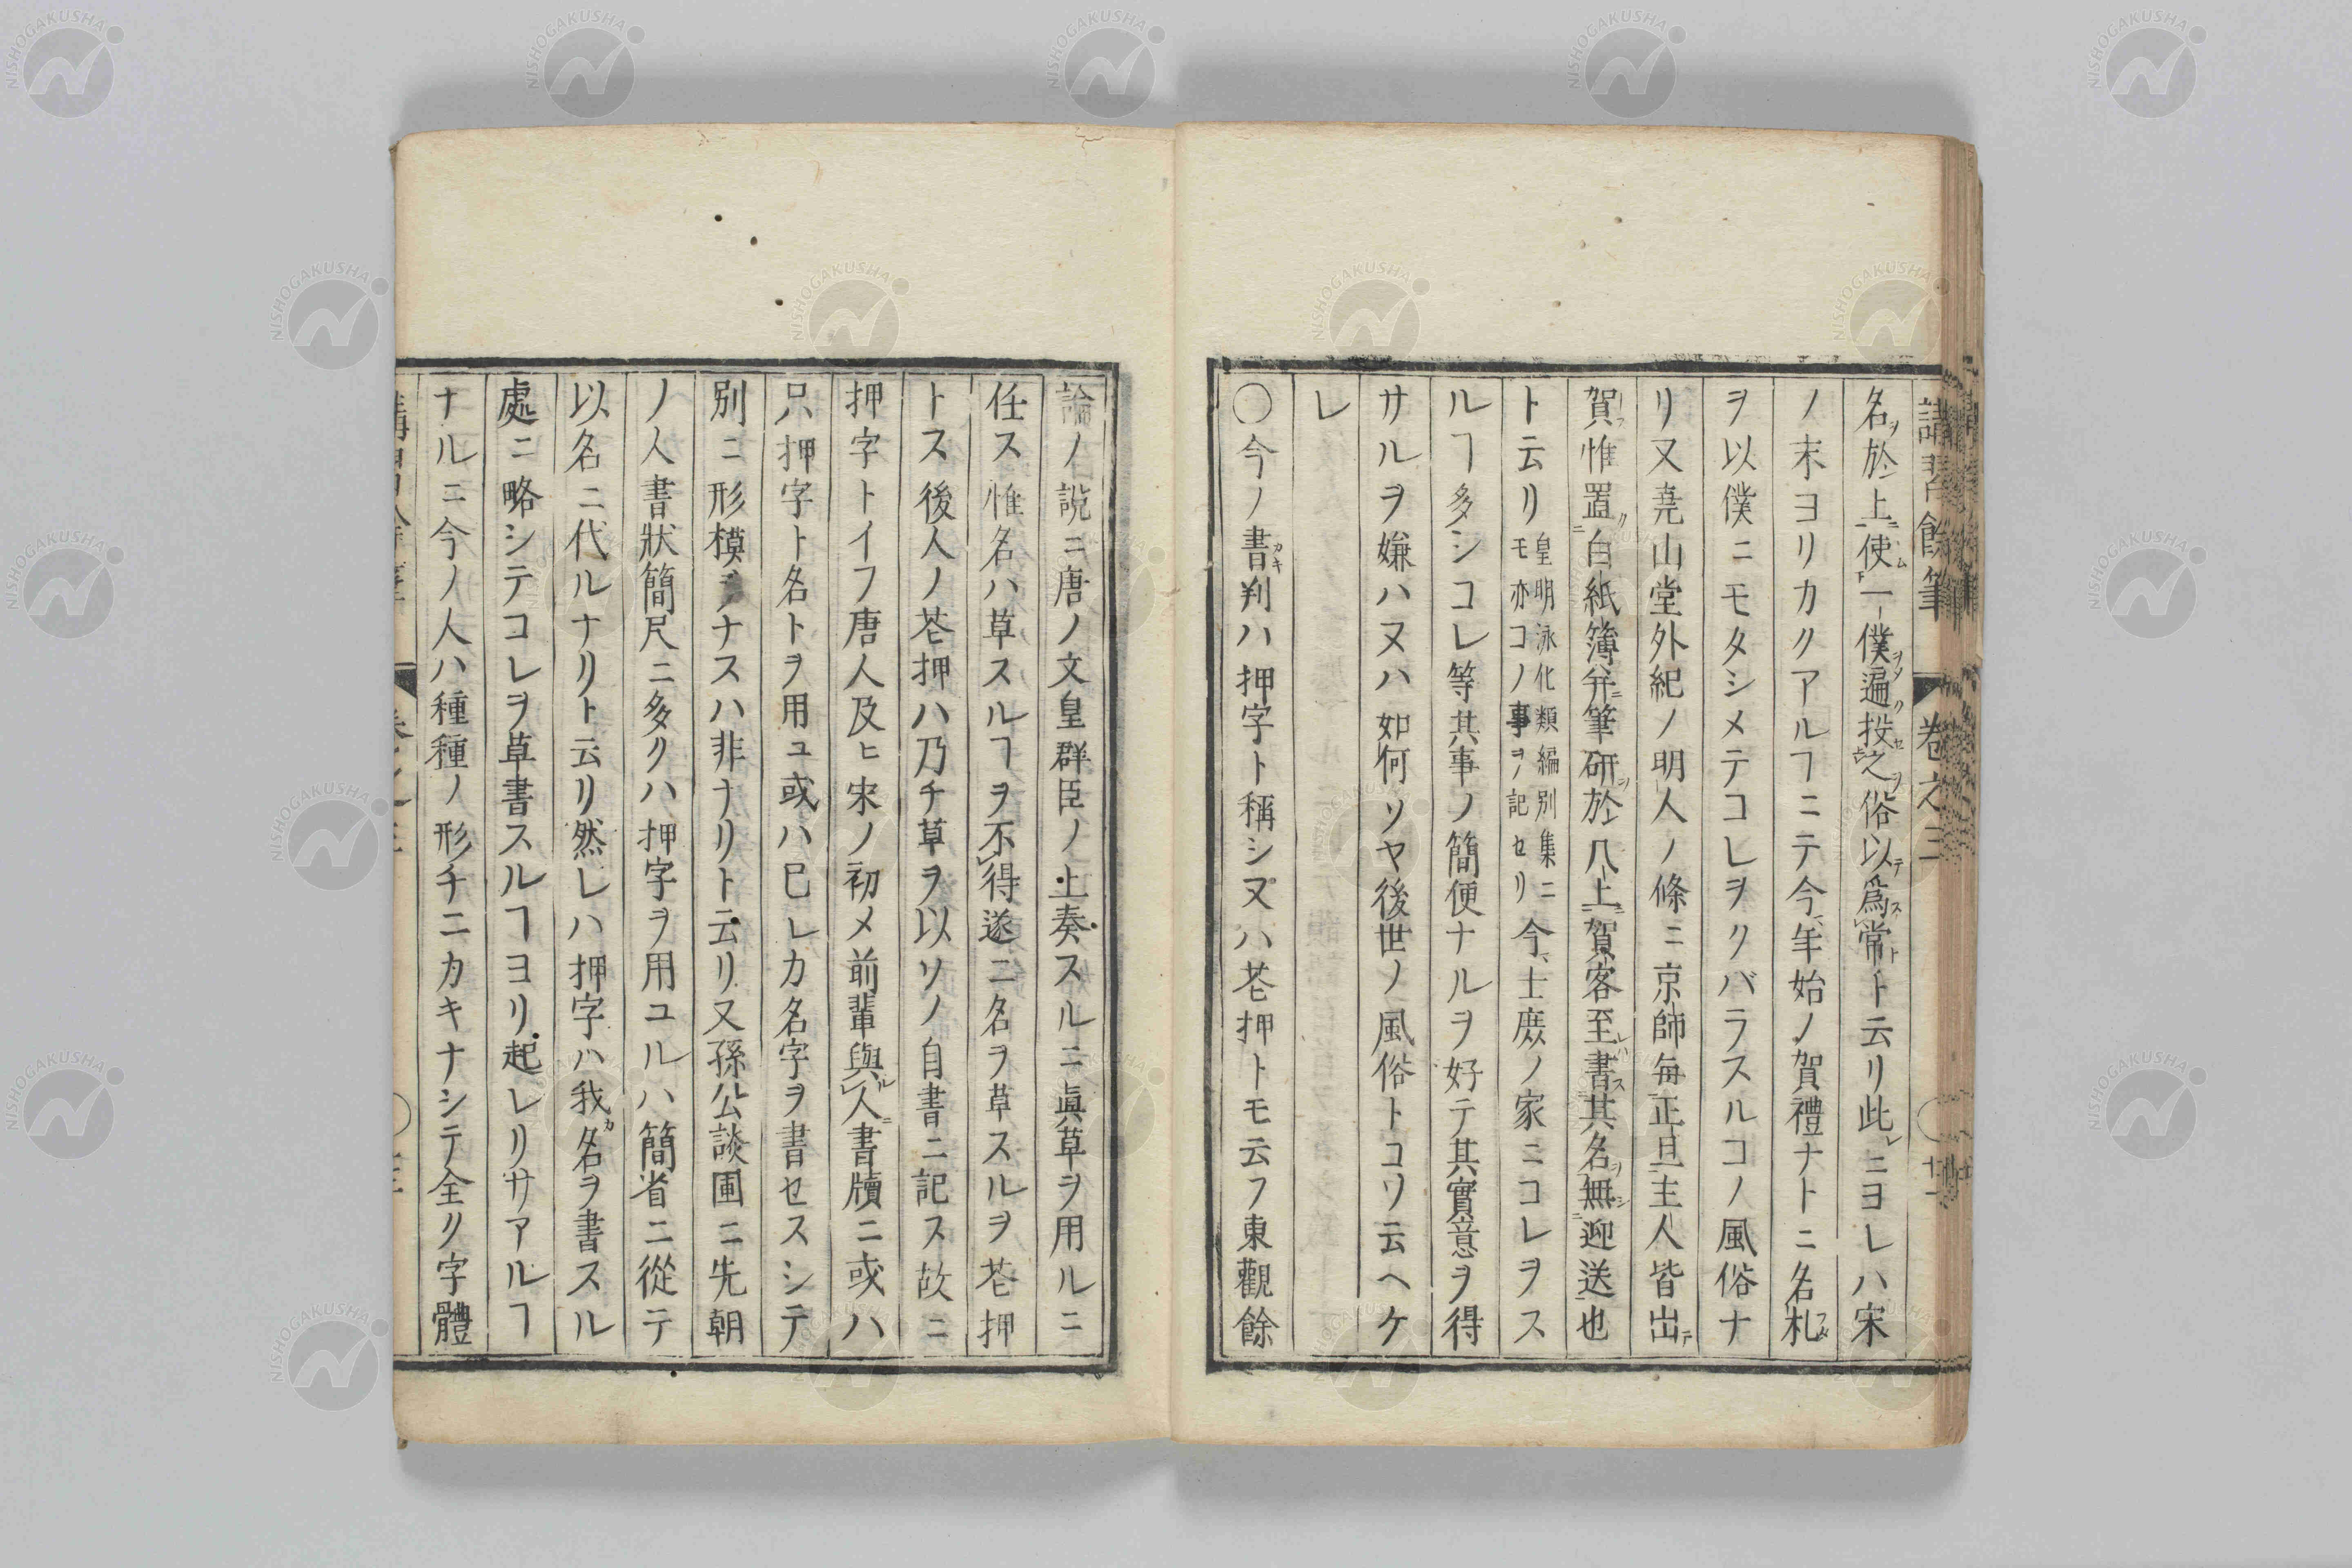 講習餘筆　卷之三
名ヲ於上ニ使ム一僕ヲメ遍ク投セ之ヲ俗以テ爲ス常トト云リ此レニヨレハ宋
ノ末ヨリカクアルヿニテ今年始ノ賀禮ナトニ名札フダ
ヲ以僕ニモタシメテコレヲクバラスルコノ風俗ナ
リ又堯山堂外紀ノ明人ノ條ニ京師毎正旦主人皆出テ
賀フ惟置ク白紙簿并ニ筆研ヲ於几上ニ賀客至レハ書ス其名ヲ無シ迎送也
ト云リ皇明泳化類編別集ニ
モ亦コノ事ヲノ記セリ今士庶ノ家ニコレヲス
ルヿ多シコレ等其事ノ簡便ナルヲ好テ其實意ヲ得
サルヲ嫌ハヌハ如何ソヤ後世ノ風俗トコソ云ヘケ
レ
〇今ノ書カキ判ハ押字ト稱シ又ハ花押トモ云フ東觀餘
論ノ說ニ唐ノ文皇群臣ノ上奏スルニ眞草ヲ用ルニ
任ス惟名ハ草スルヿヲ不得遂ニ名ヲ草スルヲ花押
トス後人ノ花押ハ乃チ草ヲ以ソノ自書ニ記ス故ニ
押字トイフ唐人及ヒ宋ノ初メ前輩與ル人ニ書牘ニ或ハ
只押字ト名トヲ用ユ或ハ已レカ名字ヲ書セスシテ
別ニ形模ヲナスハ非ナリト云リ又孫公談圃ニ先朝
ノ人書狀簡尺ニ多クハ押字ヲ用ユルハ簡省ニ從テ
以名ニ代ルナリト云リ然レハ押字ハ我カ名ヲ書スル
處ニ略シテコレヲ草書スルヿヨリ起レリサアルヿ
ナルニ今ノ人ハ種種ノ形チニカキナシテ全ク字體